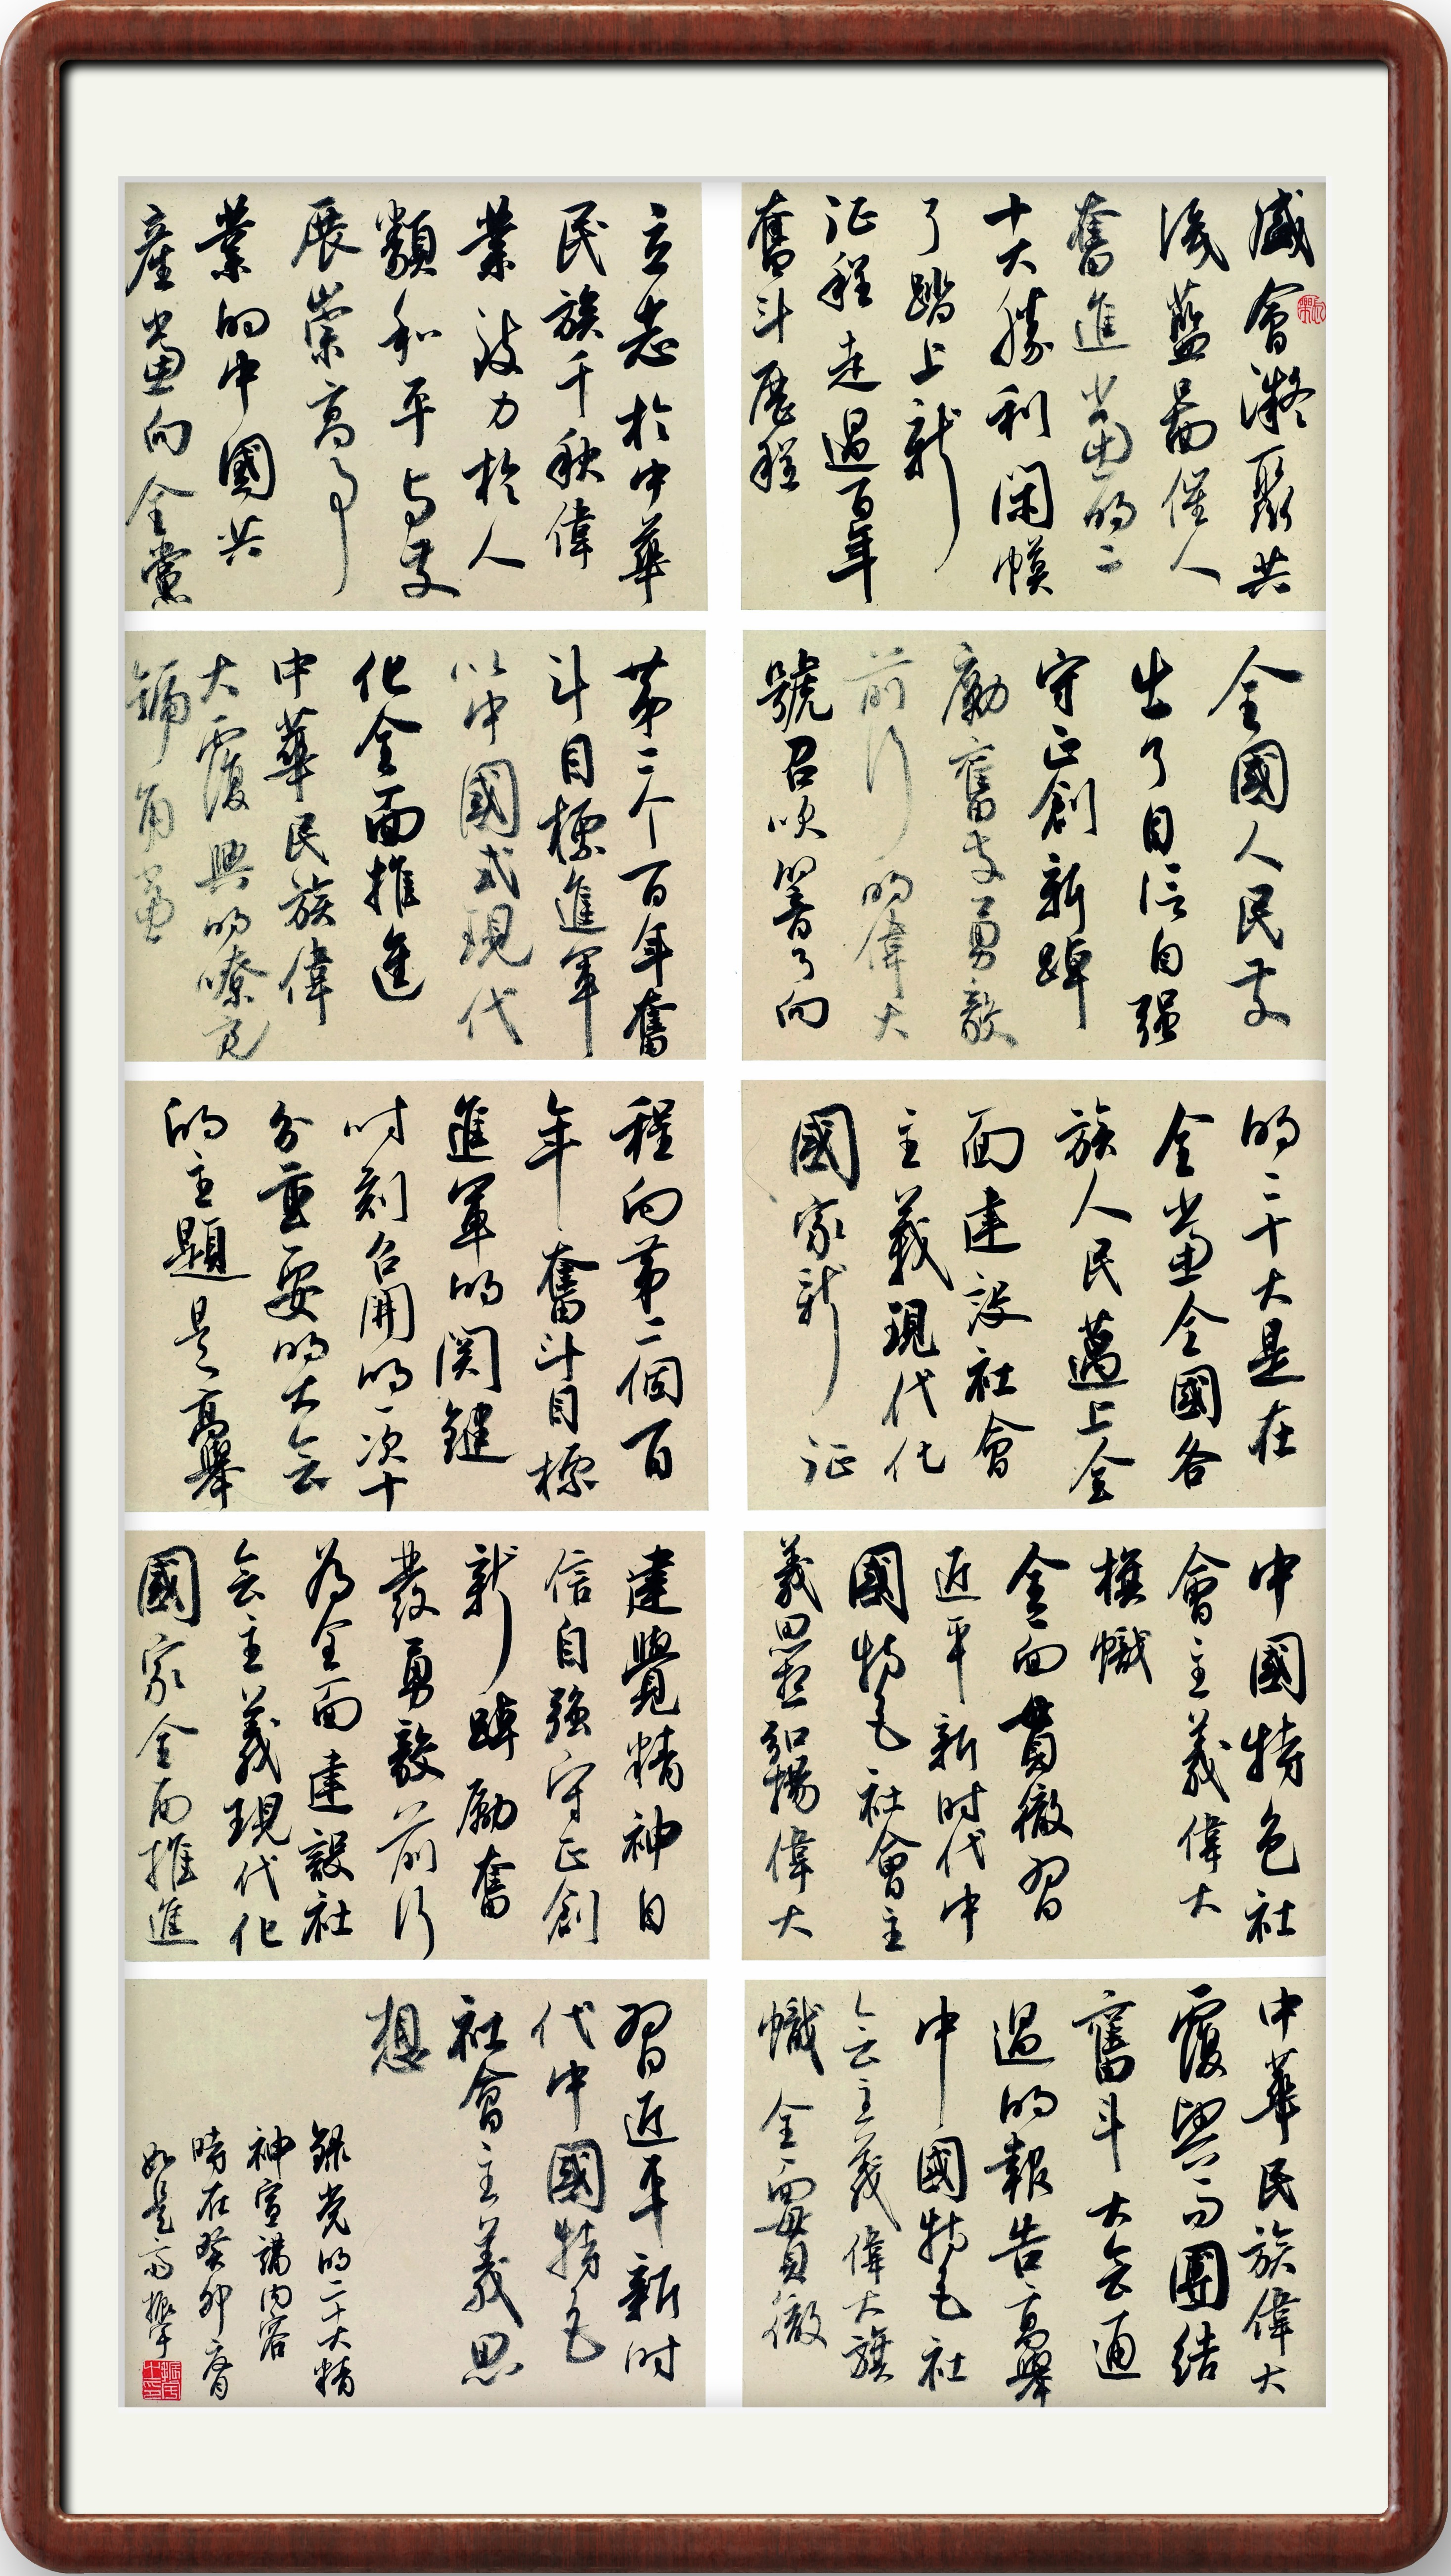 盛會凝聚共
識藍圖催人
奮進黨的二
十大勝利閉幕
了踏上新
征程走過百年
奮斗歷程
立志於中華
民族千秋偉
業致力於人
類和平与发
展崇高事
業的中國共
產黨向全黨
全國人民发
出了自信自强
守正創新踔
勵奮发勇毅
前行的偉大
號召吹響了向
第二个百年奮
斗目標進軍
以中國式現代
化全面推進
中華民族偉
大復興的嘹亮
號角黨
的二十大是在
全黨全國各
族人民邁上全
面建設社會
主義現代化
國家新征
程向第二個百
年奮斗目標
進軍的関鍵
时刻召開的一次十
分重要的大会
的主題是高舉
中國特色社
會主義偉大
旗幟
全面貫徹習
近平新时代中
國特色社會主
義思想弘揚偉大
建黨精神自
信自强守正創
新踔勵奮
發勇毅前行
为全面建設社
会主義現代化
國家全面推進
中華民族偉大
復興而團結
奮斗大会通
過的報告高舉
中國特色社
会主義偉大旗
幟全面貫徹
習近平新时
代中國特色
社會主義思
想
錄党的二十大精
神宣講内容
時在癸卯